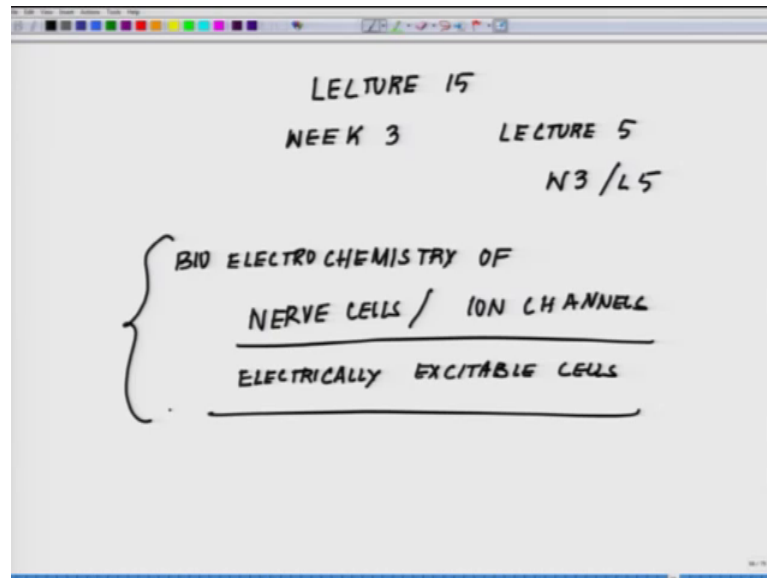 LECTURE 15
WEEK 3 LECTURE 5
W3/L5
BIO ELECTROCHEMISTRY OF
NERVE CELLS / ION CHANNELS
ELECTRICALLY EXCITABLE CELLS